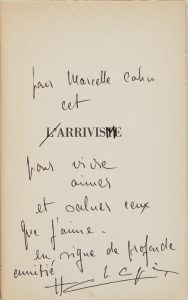 pour Marcelle Cahn
cet
L'ARRIVISME
pour vivre
aimer
et saluer ceux
que j'aime.
en signe de profonde
amitié